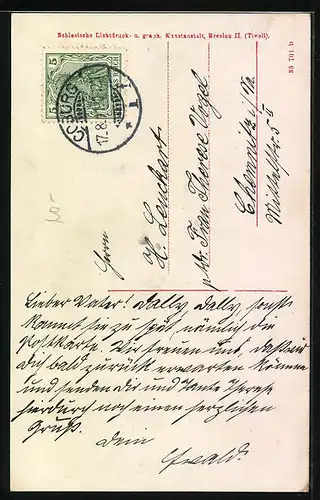 Schlesische Lichtdruck- u. graph. Kunstanstalt, Breslau II. (Tivoli).
33 701 b
5 5
17.8.
Herrn
H. Lenckart
p. Adr. Frau Therese Vogel
Chemnitz i/Sa.
5 II
Lieber Vater! Dally, Dally, sonst
kommt sie zu spät, nämlich die
Postkarte. Wir freuen uns, dass wir
Dich bald zurück erwarten können
und senden Dir und Tante Therese
hierdurch noch einen herzlichen
Gruß.
Dein
Ewald.